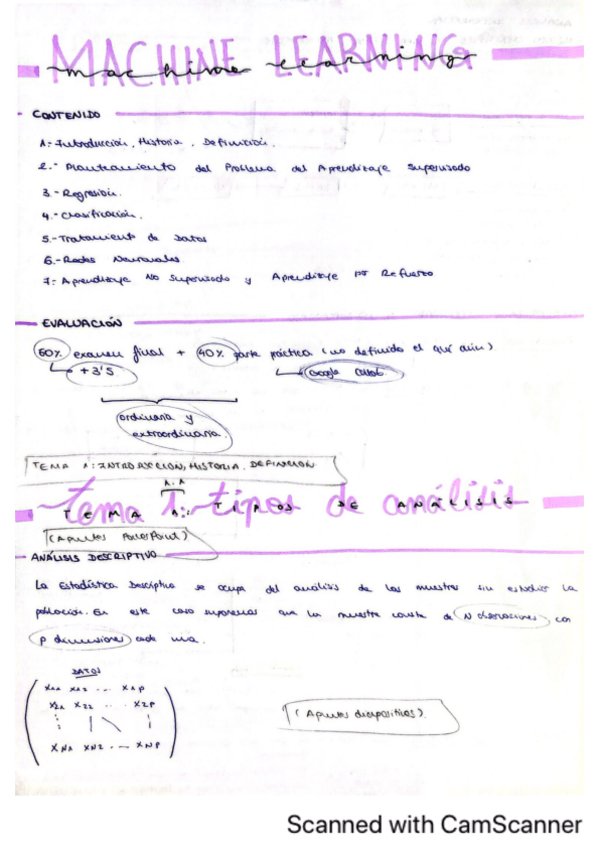 MACHINE LEARNING
machine learning
CONTENIDO
1.- Introducción, Historia. Definición.
2.- Planteamiento del Problema del Aprendizaje Supervisado
3.- Regresión.
4.- Clasificación.
5.- Tratamiento de Datos
6.- Redes Neuronales
7.- Aprendizaje No Supervisado y Aprendizaje por Refuerzo
EVALUACIÓN
60% examen final + 40% parte práctica (no definido el qué aún)
+3'5 Google
ordinaria y
extraordinaria.
TEMA 1: INTRODUCCION, HISTORIA. DEFINICION
1.1
Tema 1: tipos de análisis
TEMA 1: TIPOS DE ANÁLISIS
(Apuntes PowerPoint)
ANÁLISIS DESCRIPTIVO
La Estadística Descriptiva se ocupa del análisis de las muestras sin estudiar la
población. En este caso suponemos que la muestra consta de N observaciones con
p dimensiones cada una.
DATOS
x11 x12 ... x1p
x21 x22 ... x2p
xN1 xN2 ... xNp
(Apuntes diapositivas).
Scanned with CamScanner